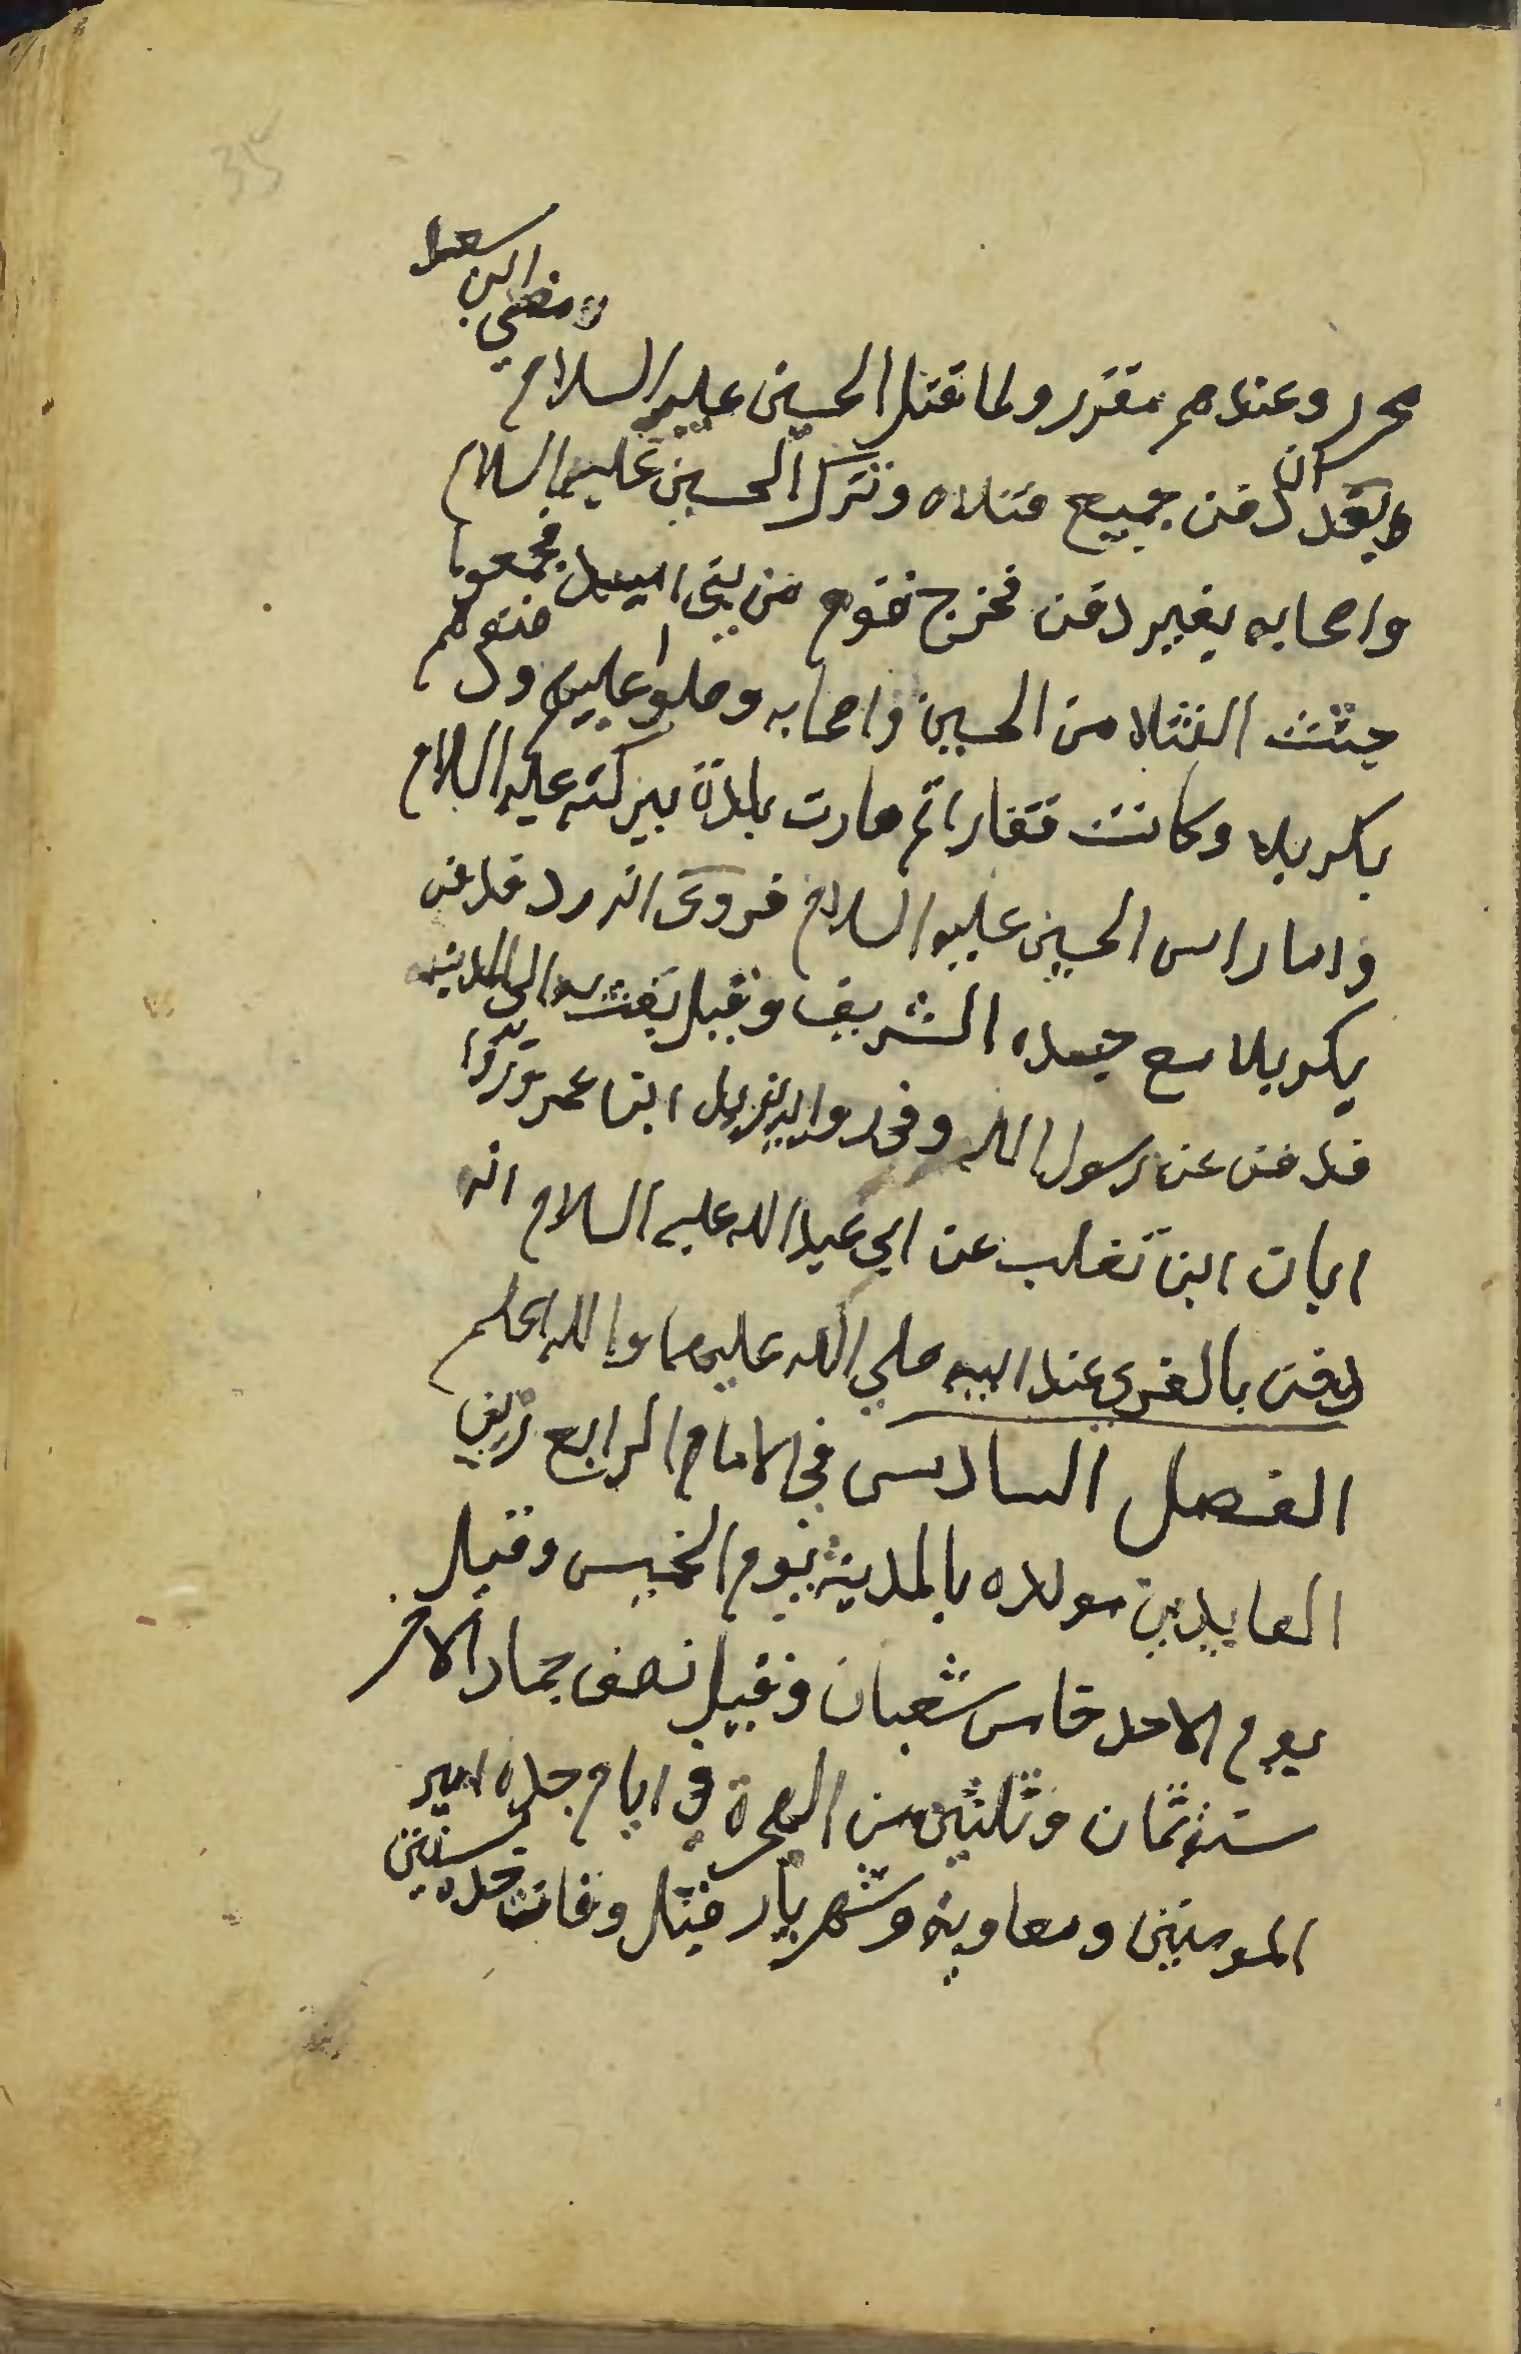 35
محرر وعندهم مقرر ولما قتل الحسين عليه السلام ومضى ابن سعد
بعد ان دفن جميع قتلاه وترك الحسين عليه السلام
واصحابه بغير دفن فخرج قوم من بني اسد فجمعوا
جثث القتلا من الحسين واصحابه وصلوا عليهم ودفنوهم
بكربلا وكانت قفارا ثم صارت بلدة ببركته عليه السلام
واما راس الحسين عليه السلام فروى انه رد فدفن
بكربلا مع جسده الشريف وقيل بعث به الى المدينه
فدفن عند رسول الله وفي رواية يزيد ابن عمر
ابان ابن تغلب عن ابي عبد الله عليه السلام انه
دفن بالغري عند ابيه صلي الله عليهما والله اعلم
الفصل السادس في الامام الرابع زين
العابدين مولده بالمدينة يوم الخميس وقيل
يوم الاحد خامس شعبان وقيل نصف جماد الاخر
سنة ثمان وثلثين من الهجرة في ايام جده امير
المومنين ومعاوية وشهريار قبل وفات جده بسنتين